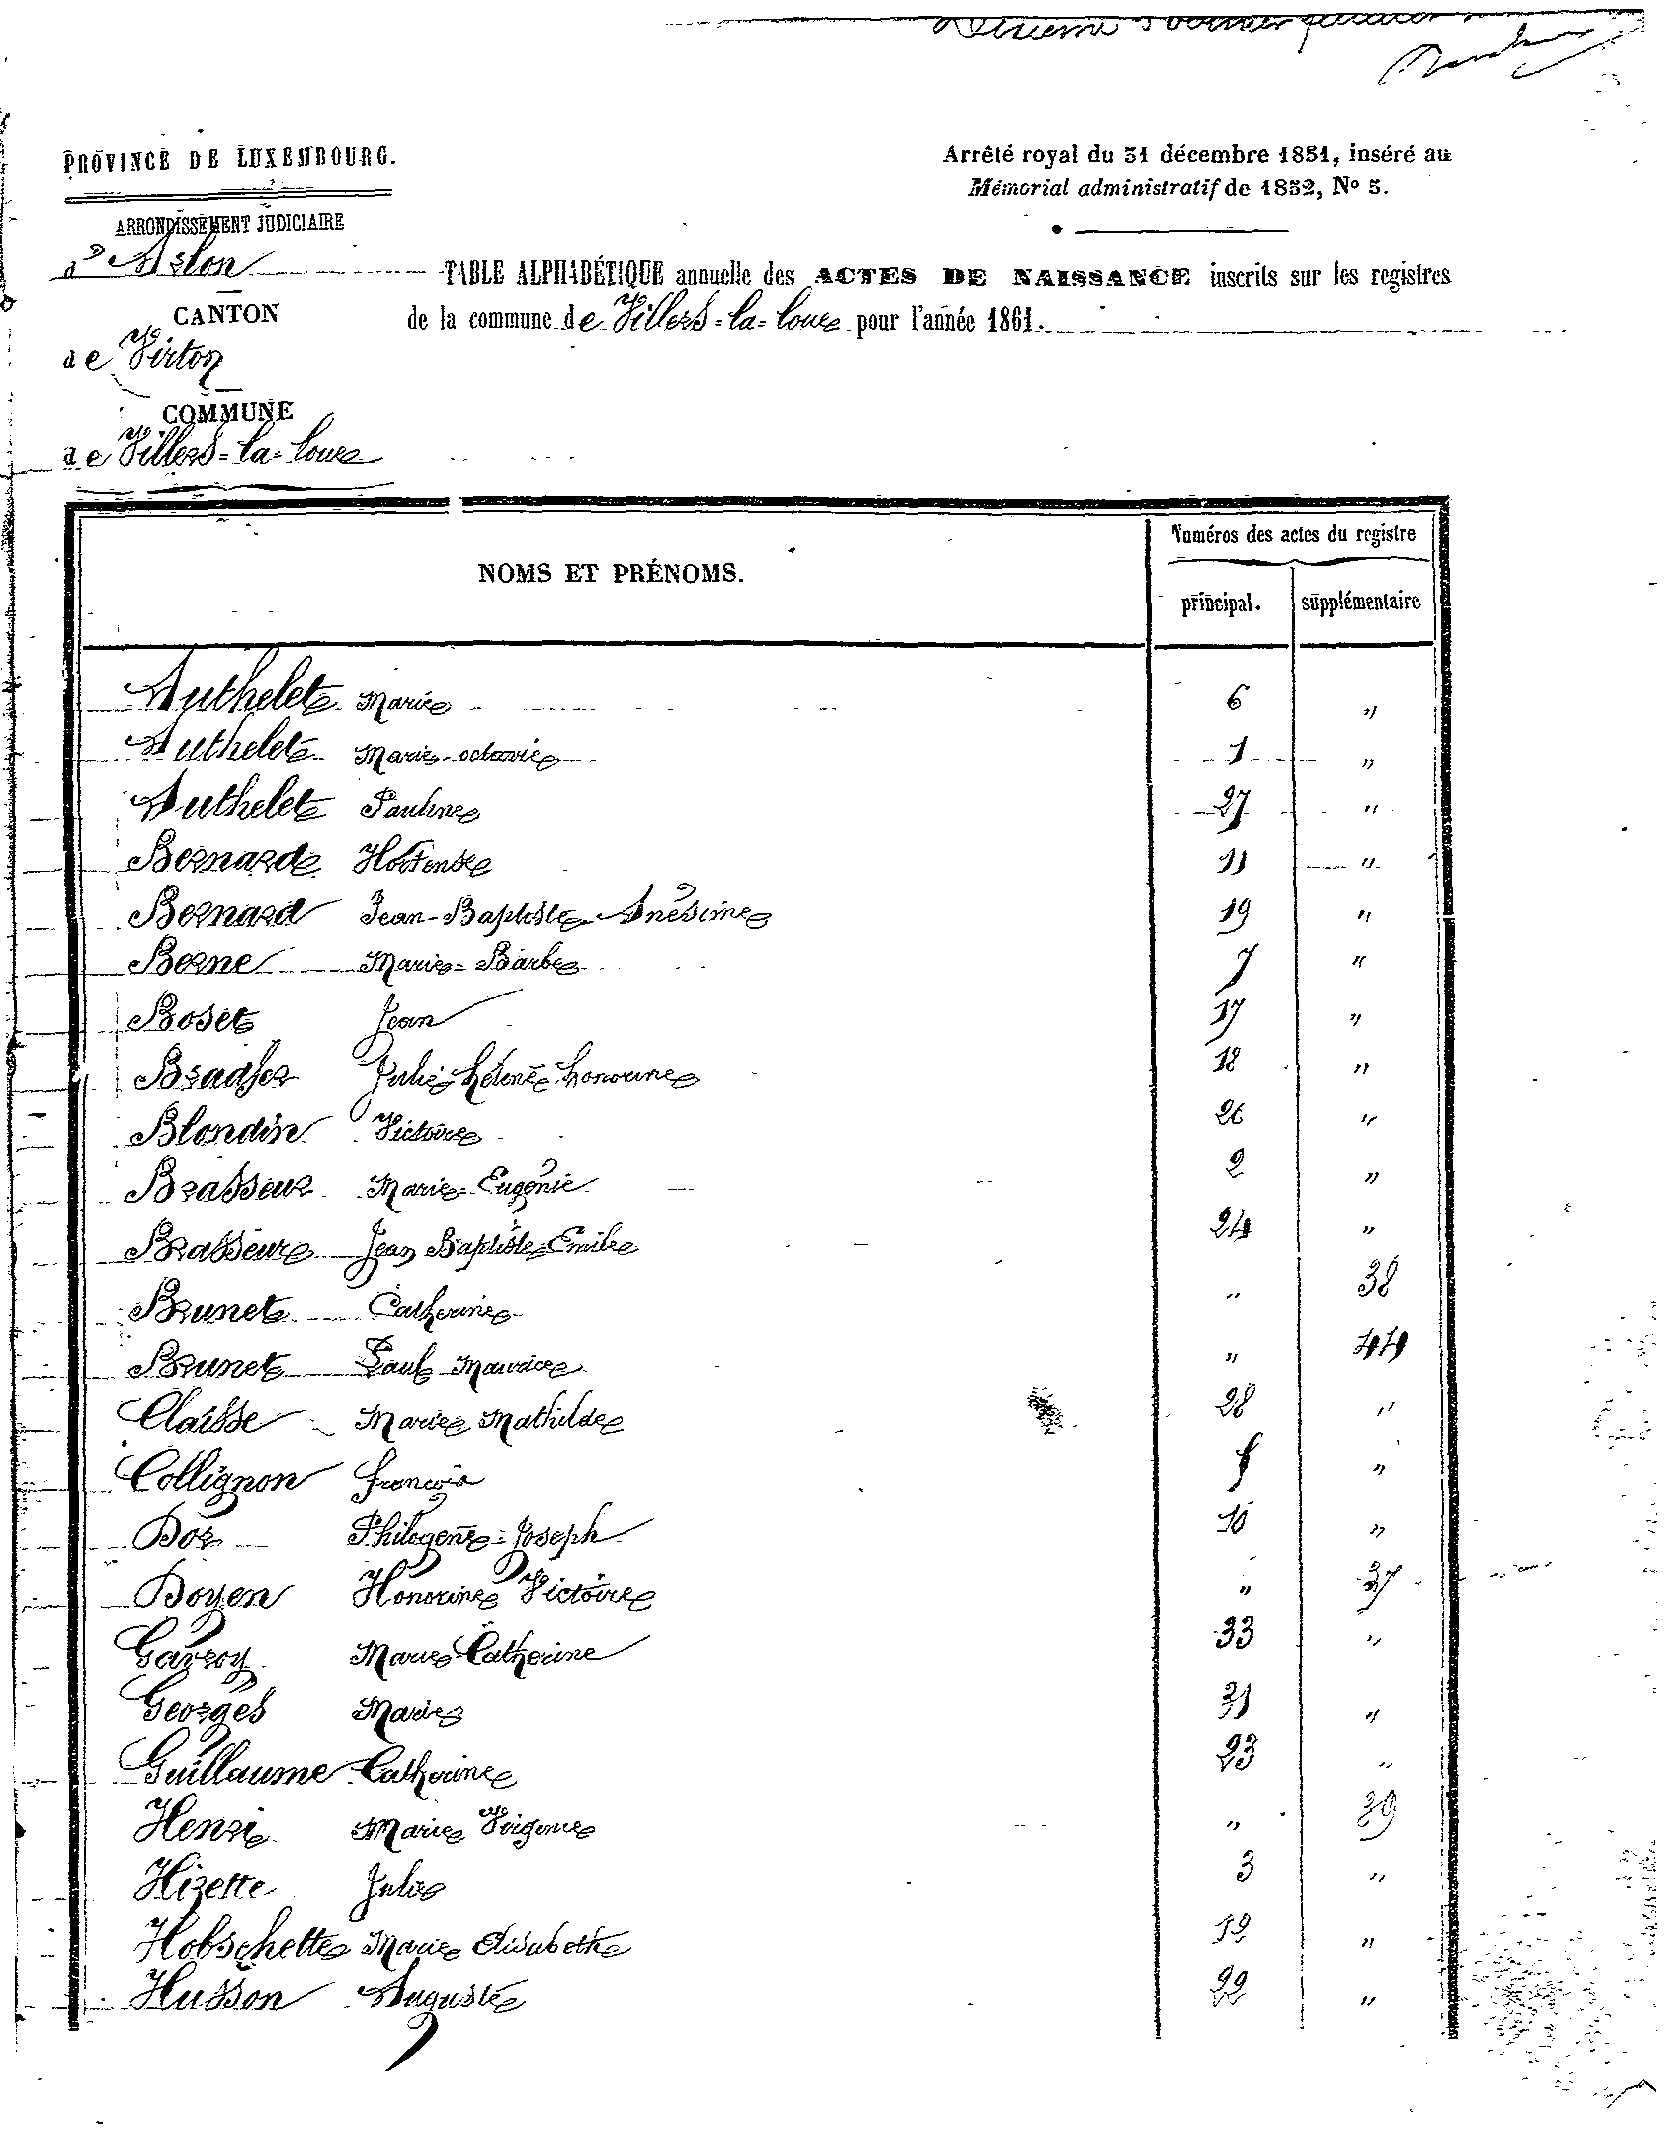 PROVINCE DE LUXEMBOURG.
Arrêté royal du 31 décembre 1851, inséré au
Mémorial administratif de 1852, No 5.
ARRONDISSEMENT JUDICIAIRE
d'Arlon
CANTON
de Virton
COMMUNE
de Villers-la-Loue
TABLE ALPHABÉTIQUE annuelle des ACTES DE NAISSANCE inscrits sur les registres
de la commune de Villers-la-Loue pour l'année 1861.
NOMS ET PRÉNOMS.
Numéros des actes du registre
principal. supplémentaire
Authelet Marie 6 "
Authelet Marie-octavie 1 "
Authelet Pauline 27 "
Bernard Hortense 11 "
Bernard Jean-Baptiste Onésime 19 "
Berne Marie-Barbe 7 "
Boset Jean 17 "
Bradfer Julie Hélène Honorine 18 "
Blondin Victoire 26 "
Brasseur Marie-Eugénie 2 "
Brasseur Jean Baptiste-Emile 24 "
Brunet Catherine " 38
Brunet Paul Maurice " 44
Claisse Marie Mathilde 28 "
Collignon François "
Doz Philogene-Joseph 10 "
Doyen Honorine Victoire " 37
Gavroy Marie Catherine 33 "
Georges Marie 31 "
Guillaume Catherine 23 "
Henri Marie Virginie " 39
Hizette Julie 3 "
Hobschette Marie Elisabeth "
Husson Auguste 22 "